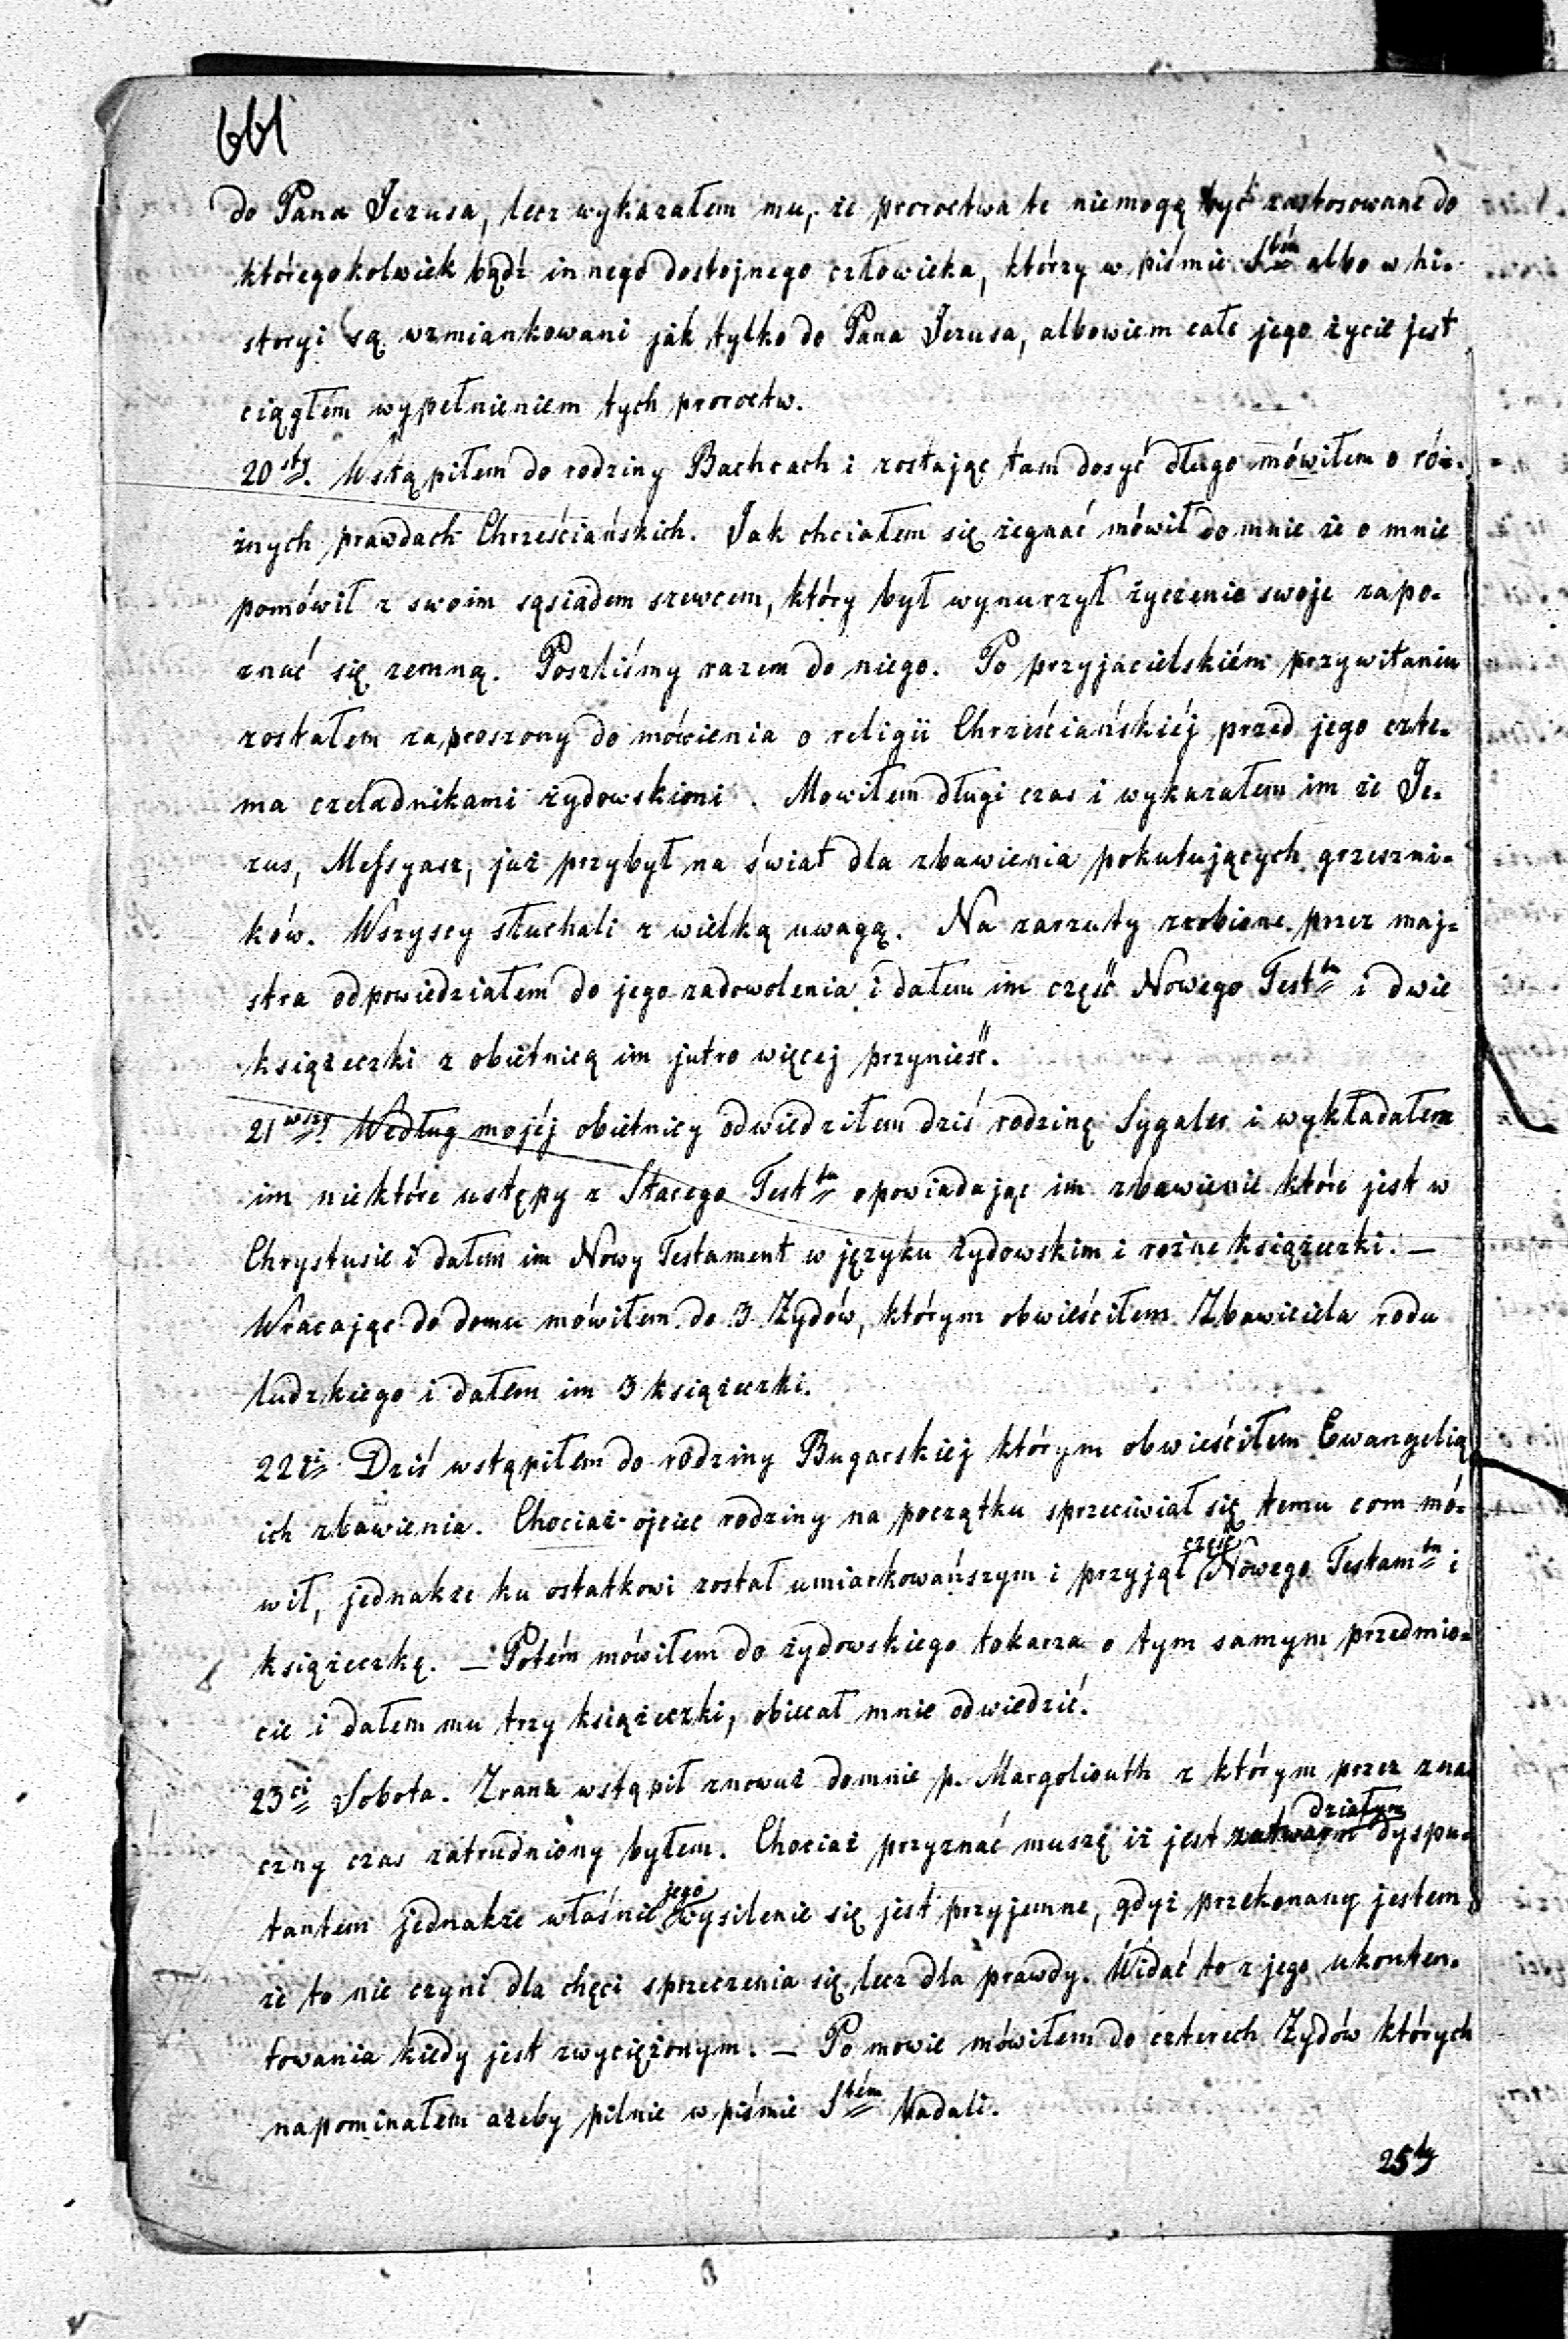 661
do Pana Jezusa, lecz wykazałem mu, że proroctwa te niemogą być zastosowane do
któregokolwiek bądź innego dostojnego człowieka, którzy w piśmie Stém albo w hi-
storyi są wzmiankowani jak tylko do Pana Jezusa, albowiem całe jego życie jest
ciągłém wypełnieniem tych proroctw.
20sty. Wstąpiłem do rodziny Bachrach i zostając tam dosyć długo mówiłem o róż-
żnych prawdach Chrześciańskich. Jak chciałem się żegnać mówił do mnie że o mnie
pomówił z swoim sąsiadem szewcem, który był wynurzył życzenie swoje zapo-
znać się zemną. Poszliśmy razem do niego. Po przyjacielskiém przywitaniu
zostałem zaproszony do mówienia o religii Chrześciańskiéj przed jego czte-
ma czeladnikami żydowskiemi. Mowiłem długi czas i wykazałem im że Je-
zus, Messyasz, już przybył na świat dla zbawienia pokutujących grzeszni-
ków. Wszyscy słuchali z wielką uwagą. Na zarzuty zrobione przez maj-
stra odpowiedziałem do jego zadowolenia i dałem im część Nowego Testtu i dwie
książeczki z obietnicą im jutro więcej przynieść.
21wszy Według mojéj obietnicy odwiedziłem dziś rodzinę Sygaler i wykładałem
im niektóre ustępy z Starego Testtu opowiadając im zbawienie które jest w
Chrystusie i dałem im Nowy Testament w języku żydowskim i rożne książeczki. —
Wracając do domu mówiłem do 3 Żydów, którym obwieściłem Zbawiciela rodu
ludzkiego i dałem im 3 książeczki.
22gi Dziś wstąpiłem do rodziny Bugarskiej którym obwieściłem Ewangelią
ich zbawienia. Chociaż ojciec rodziny na początku sprzeciwiał się temu com mó-
wił, jednakże ku ostatkowi został umiarkowańszym i przyjął część Nowego Testamtu i
książeczkę. — Potém mówiłem do żydowskiego tokarza o tym samym przedmio-
cie i dałem mu trzy książeczki, obiecał mnie odwiedzić.
23ci Sobota. Zrana wstąpił znowuż domnie p. Margoliouth z którym przez zna
czny czas zatrudniony byłem. Chociaż przyznać muszę iż jest działym dyspu-
tantem jednakże właśnie jego wysilenie się jest przyjemne, gdyż przekonany jestem
że to nie czyni dla chęci sprzeczenia się lecz dla prawdy. Widać to z jego ukonten-
towania kiedy jest zwyciężonym. — Po mowie mówiłem do czterech Żydów których
napominałem ażeby pilnie w piśmie Stém badali.
25ty